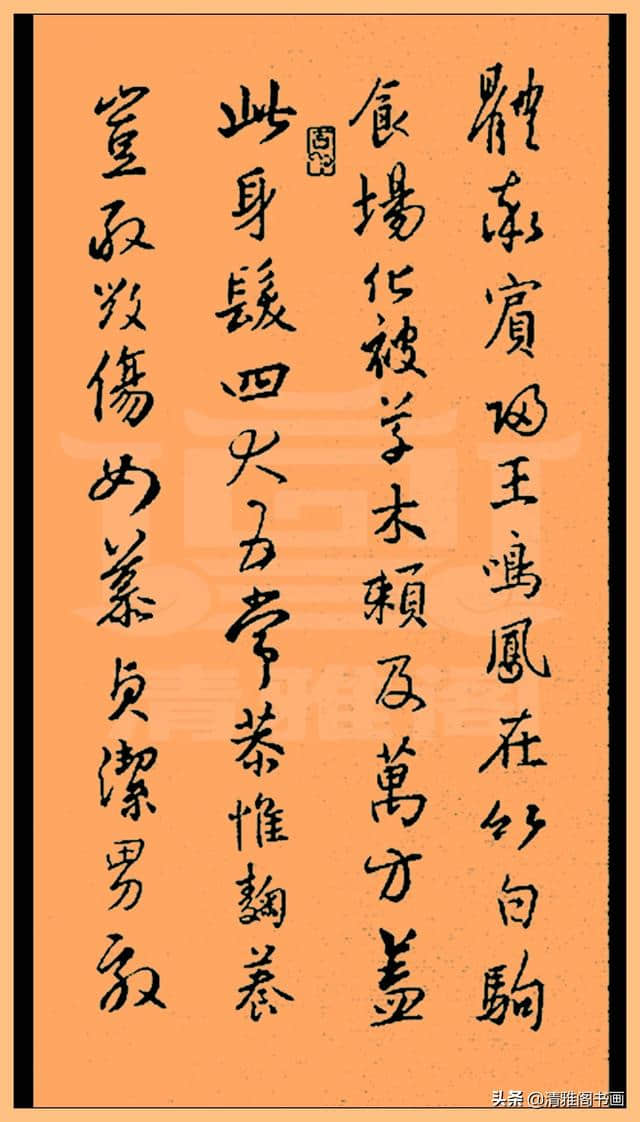 體率賓歸王鳴鳳在竹白駒
食場化被草木賴及萬方蓋
此身髮四大五常恭惟鞠養
豈敢毀傷女慕貞潔男效
清雅阁
头条 @清雅阁书画